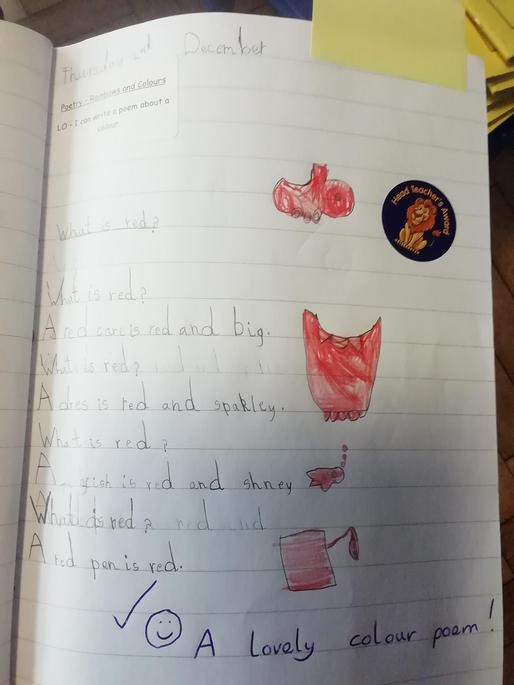 Thursday 2nd December
Poetry - Rainbows and Colours
LO - I can write a poem about a
colour.
Head Teacher's Award
What is red?
What is red?
A red care is red and big.
What is red?
A dres is red and spakley.
What is red?
A fish is red and shney
What is red?
A red pen is red.
A lovely colour poem!